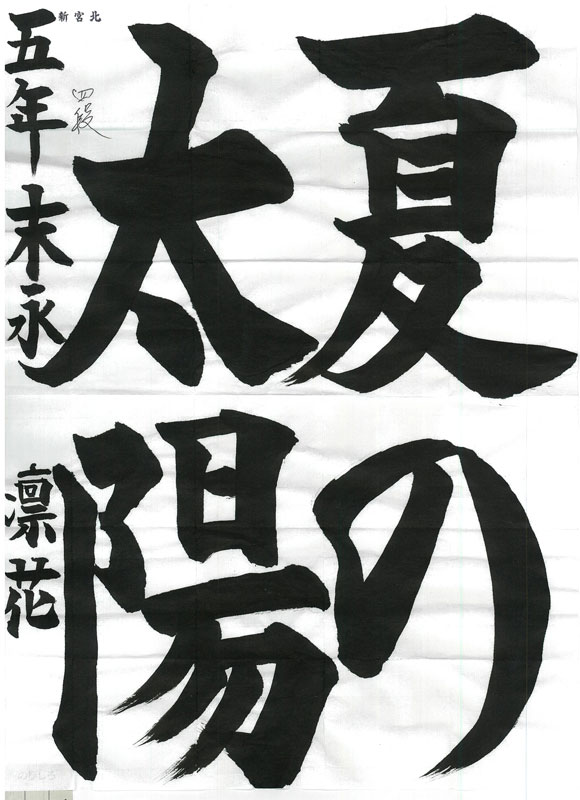 夏の
太陽
四段
新宮北
五年 末永凛花